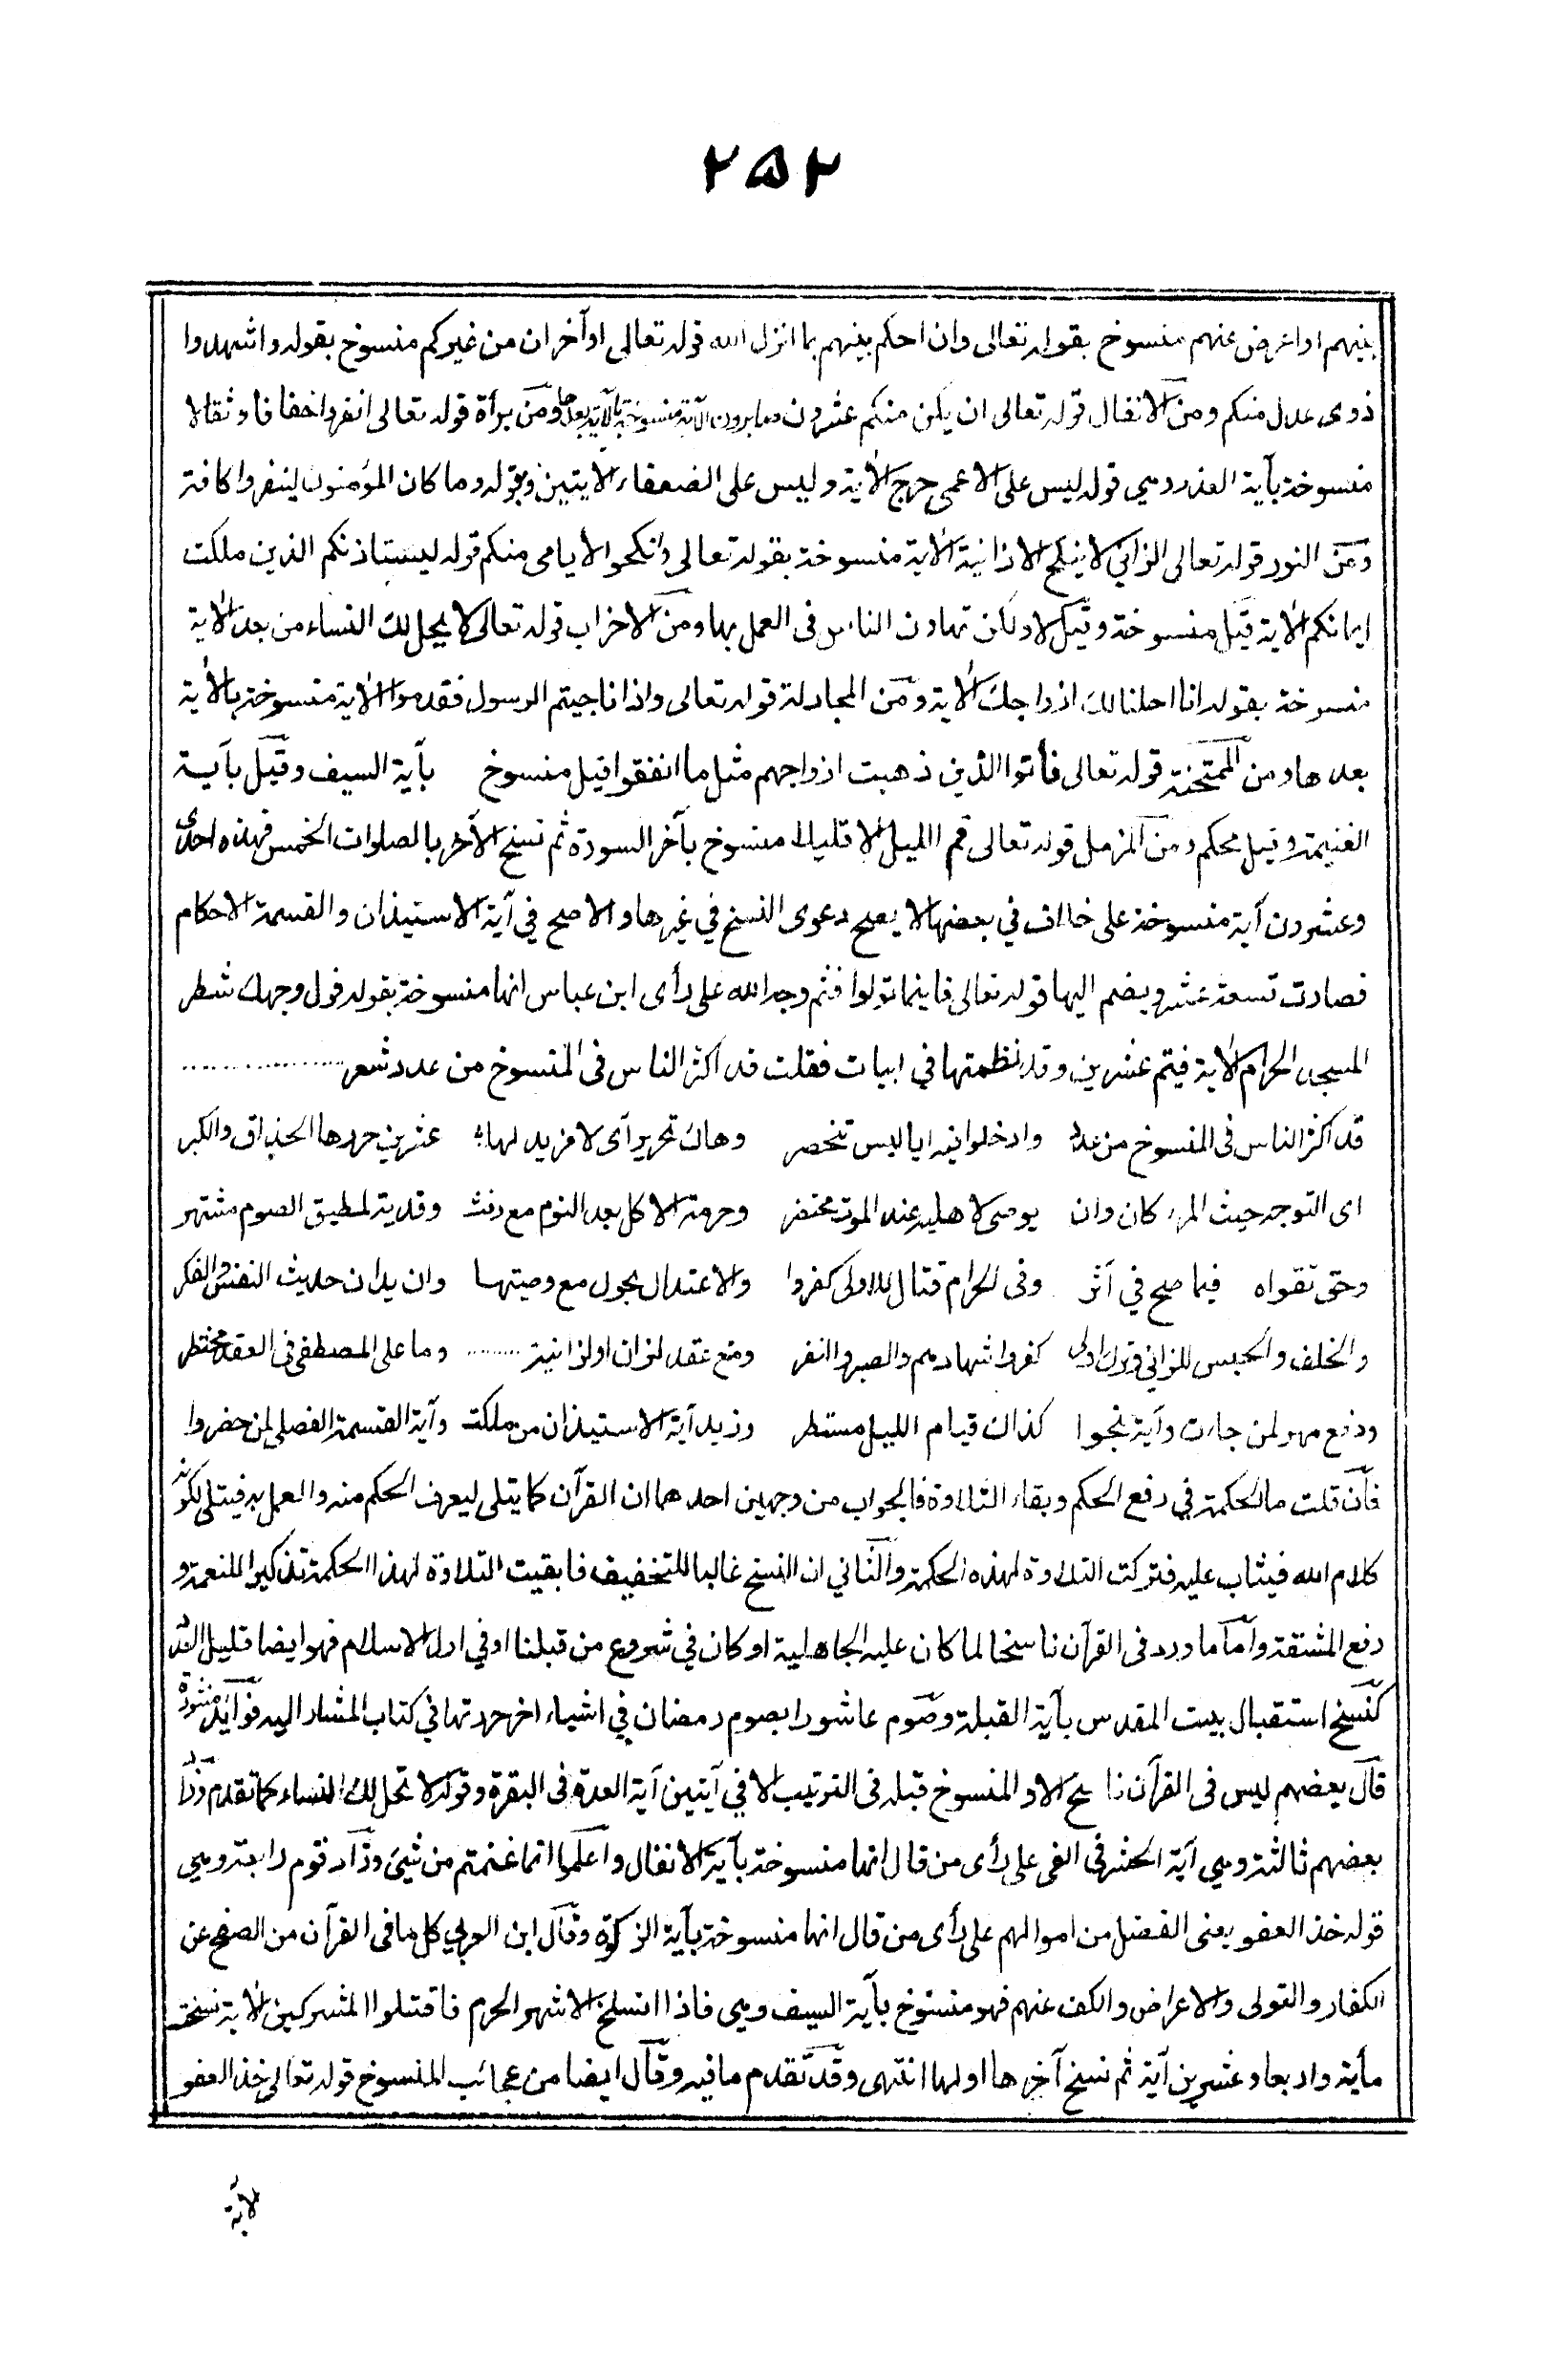 ۲۵۲
بينهم او اعرض عنهم منسوخ بقوله تعالى وان احكم بينهم بما انزل الله قوله تعالى او آخران من غيركم منسوخ بقوله واشهدوا
ذوى عدل منكم ومن الانفال قوله تعالى ان يكن منكم عشرون صابرون الآية منسوخة بالآية بعدها ومن براة قوله تعالى انفروا خفافا وثقالا
منسوخة بآية العذر وهي قوله ليس على الاعمى حرج الاية وليس على الضعفاء الايتين وبقوله وما كان المؤمنون لينفروا كافة
ومن النور قوله تعالى الزاني لا ينكح الا زانية الاية منسوخة بقوله تعالى وانكحوا الايامى منكم قوله ليستاذنكم الذين ملكت
ايمانكم الاية قيل منسوخة وقيل لا ولكن تهاون الناس فى العمل بها ومن الاحزاب قوله تعالى لا يحل لك النساء من بعد الاية
منسوخة بقوله انا احللنا لك ازواجك الاية ومن المجادلة قوله تعالى واذا ناجيتم الرسول فقدموا الاية منسوخة بالاية
بعدها ومن الممتحنة قوله تعالى فأتوا الذين ذهبت ازواجهم مثل ما انفقوا قيل منسوخ بآية السيف وقيل بآية
الغنيمة وقيل محكم ومن المزمل قوله تعالى قم الليل الا قليلا منسوخ بآخر السورة ثم نسخ الآخر بالصلوات الخمس فهذه احدى
وعشرون آية منسوخة على خلاف في بعضها لا يصح دعوى النسخ في غيرها والاصح في آية الاستيذان والقسمة الاحكام
فصارت تسعة عشر ويضم اليها قوله تعالى فاينما تولوا فثم وجه الله على رأى ابن عباس انها منسوخة بقوله فول وجهك شطر
المسجد الحرام الاية فيتم عشرين وقد نظمتها في ابيات فقلت قد اكثر الناس فى المنسوخ من عدد شعر
قد اكثر الناس فى المنسوخ من عدد وادخلوا فيه ايا ليس تنحصر وهاك تحرير آى لا مزيد لها عشرين حررها الحذاق والكبر
اى التوجه حيث المرء كان وان يوصى لاهليه عند الموت محتضر وحرمة الاكل بعد النوم مع رفث وفدية لمطيق الصوم مشتهر
وحق تقواه فيما صح في اثر وفى الحرام قتال للاولى كفروا والاعتدال بحول مع وصيتها وان يدان حديث النفس والفكر
والخلف والحبس للزاني وترك اولى كفروا شهادهم والصبر والنفر ومنع عقد لزان او لزانية وما على المصطفى فى العقد محتظر
ودفع مهر لمن جاءت وآية نجوا كذاك قيام الليل مستطر وزيد آية الاستيذان من ملكت وآية القسمة الفضلى لمن حضروا
فان قلت ما الحكمة في رفع الحكم وبقاء التلاوة فالجواب من وجهين احدهما ان القرآن كما يتلى ليعرف الحكم منه والعمل به فيتلى لكونه
كلام الله فيثاب عليه فتركت التلاوة لهذه الحكمة والثاني ان النسخ غالبا للتخفيف فابقيت التلاوة لهذا الحكمة تذكيرا للنعمة و
رفع المشقة واما ما ورد فى القرآن ناسخا لما كان عليه الجاهلية او كان في شروع من قبلنا او في اول الاسلام فهو ايضا قليل العدد
كنسخ استقبال بيت المقدس بآية القبلة وصوم عاشورا بصوم رمضان في اشياء اخر حررتها في كتاب المشار اليه فوائد منثورة
قال بعضهم ليس فى القرآن ناسخ الا والمنسوخ قبله فى الترتيب الا في آيتين آية العدة فى البقرة وقوله لا تحل لك النساء كما تقدم وزاد
بعضهم ثالثة وهي آية الحشر فى الفى على رأى من قال انها منسوخة بآية الانفال واعلموا انما غنمتم من شيئ وزاد قوم رابعة وهي
قوله خذ العفو يعنى الفضل من اموالهم على رأى من قال انها منسوخة بآية الزكوة وقال ابن العربي كل ما فى القرآن من الصفح عن
الكفار والتولى والاعراض والكف عنهم فهو منسوخ بآية السيف وهى فاذا انسلخ الاشهر الحرم فاقتلوا المشركين الاية نسخت
مأية واربعا وعشرين آية ثم نسخ آخرها اولها انتهى وقد تقدم ما فيه وقال ايضا من عجائب المنسوخ قوله تعالى خذ العفو
لآية